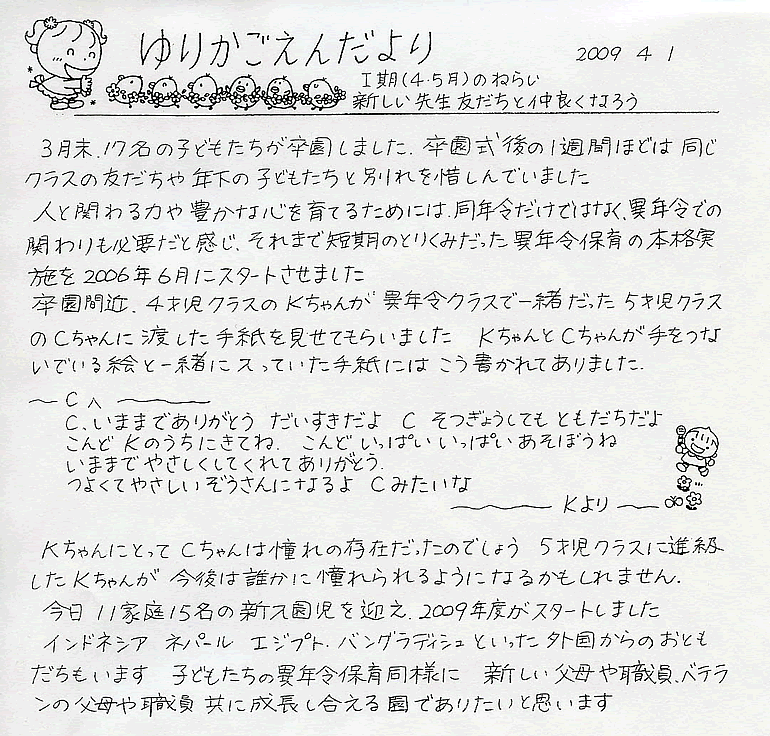 ゆりかごえんだより
2009 4 1
I期(4・5月)のねらい
新しい先生友だちと仲良くなろう
3月末、17名の子どもたちが卒園しました。卒園式後の1週間ほどは 同じ
クラスの友だちや 年下の 子どもたちと 別れを惜しんでいました
人と関わる力や 豊かな心を育てるためには、同年令だけではなく、異年令での
関わりも必要だと感じ、それまで短期のとりくみだった 異年令保育の本格実
施を2006年6月にスタートさせました
卒園間近、4才児クラスの Kちゃんが 異年令クラスで一緒だった 5才児クラス
のCちゃんに 渡した 手紙を見せてもらいました Kちゃんと Cちゃんが手をつな
いでいる絵と一緒に入っていた手紙には こう書かれてありました。
C へ
C、いままでありがとう だいすきだよ C そつぎょうしても ともだちだよ
こんど Kのうちにきてね。 こんど いっぱい いっぱい あそぼうね
いままで やさしくしてくれてありがとう。
つよくてやさしい ぞうさんになるよ Cみたいな
Kより
Kちゃんにとって Cちゃんは憧れの存在だったのでしょう 5才児クラスに進級
したKちゃんが 今後は誰かに憧れられるようになるかもしれません。
今日 11家庭15名の新入園児を迎え、2009年度がスタートしました
インドネシア ネパール エジプト、バングラディシュといった 外国からのおとも
だちもいます 子どもたちの異年令保育同様に 新しい父母や職員、ベテラ
ンの父母や職員 共に成長し合える園でありたいと思います